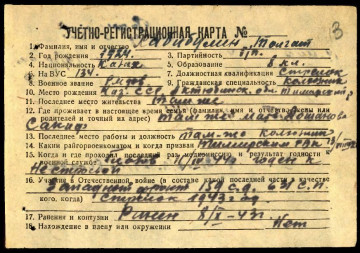 3
УЧЁТНО-РЕГИСТРАЦИОННАЯ КАРТА №
1. Фамилия, имя и отчество Хабибулин
2. Год рождения 1924 3. Партийность б/п
4. Национальность 5. Образование 5 кл.
6. На ВУС 134 7. Должностная квалификация Стрелок
8. Военное звание 9. Гражданская специальность колхозник
10. Место рождения Каз. ССР Актюбинск. обл.
11. Последнее место жительства Там же
12. Где проживает в настоящее время семья (фамилия, имя и отчество жены или
родителей и точный их адрес) Там же мать
13. Последнее место работы и должность там-же колхозник
14. Каким райгорвоенкоматом и когда призван РВК
15. Когда и где проходил раз. медкомиссию и результат годности
к военной службе годен к
нестроевой
16. Участие в Отечественной войне (в составе какой последней части в качестве
кого, когда) Западный фронт 159 с.д. 631 с.п.
стрелок 1943 год
17. Ранения и контузии Ранен 8/IX-43 г.
18. Нахождение в плену или окружении Нет